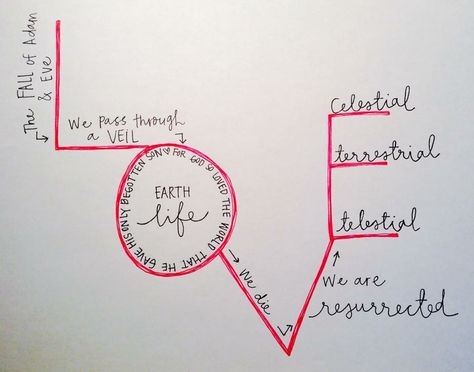 The FALL of Adam
& Eve
We pass through
a VEIL
FOR GOD SO LOVED THE WORLD THAT HE GAVE HIS ONLY BEGOTTEN SON
EARTH
life
We die
We are
resurrected
Celestial
terrestrial
telestial